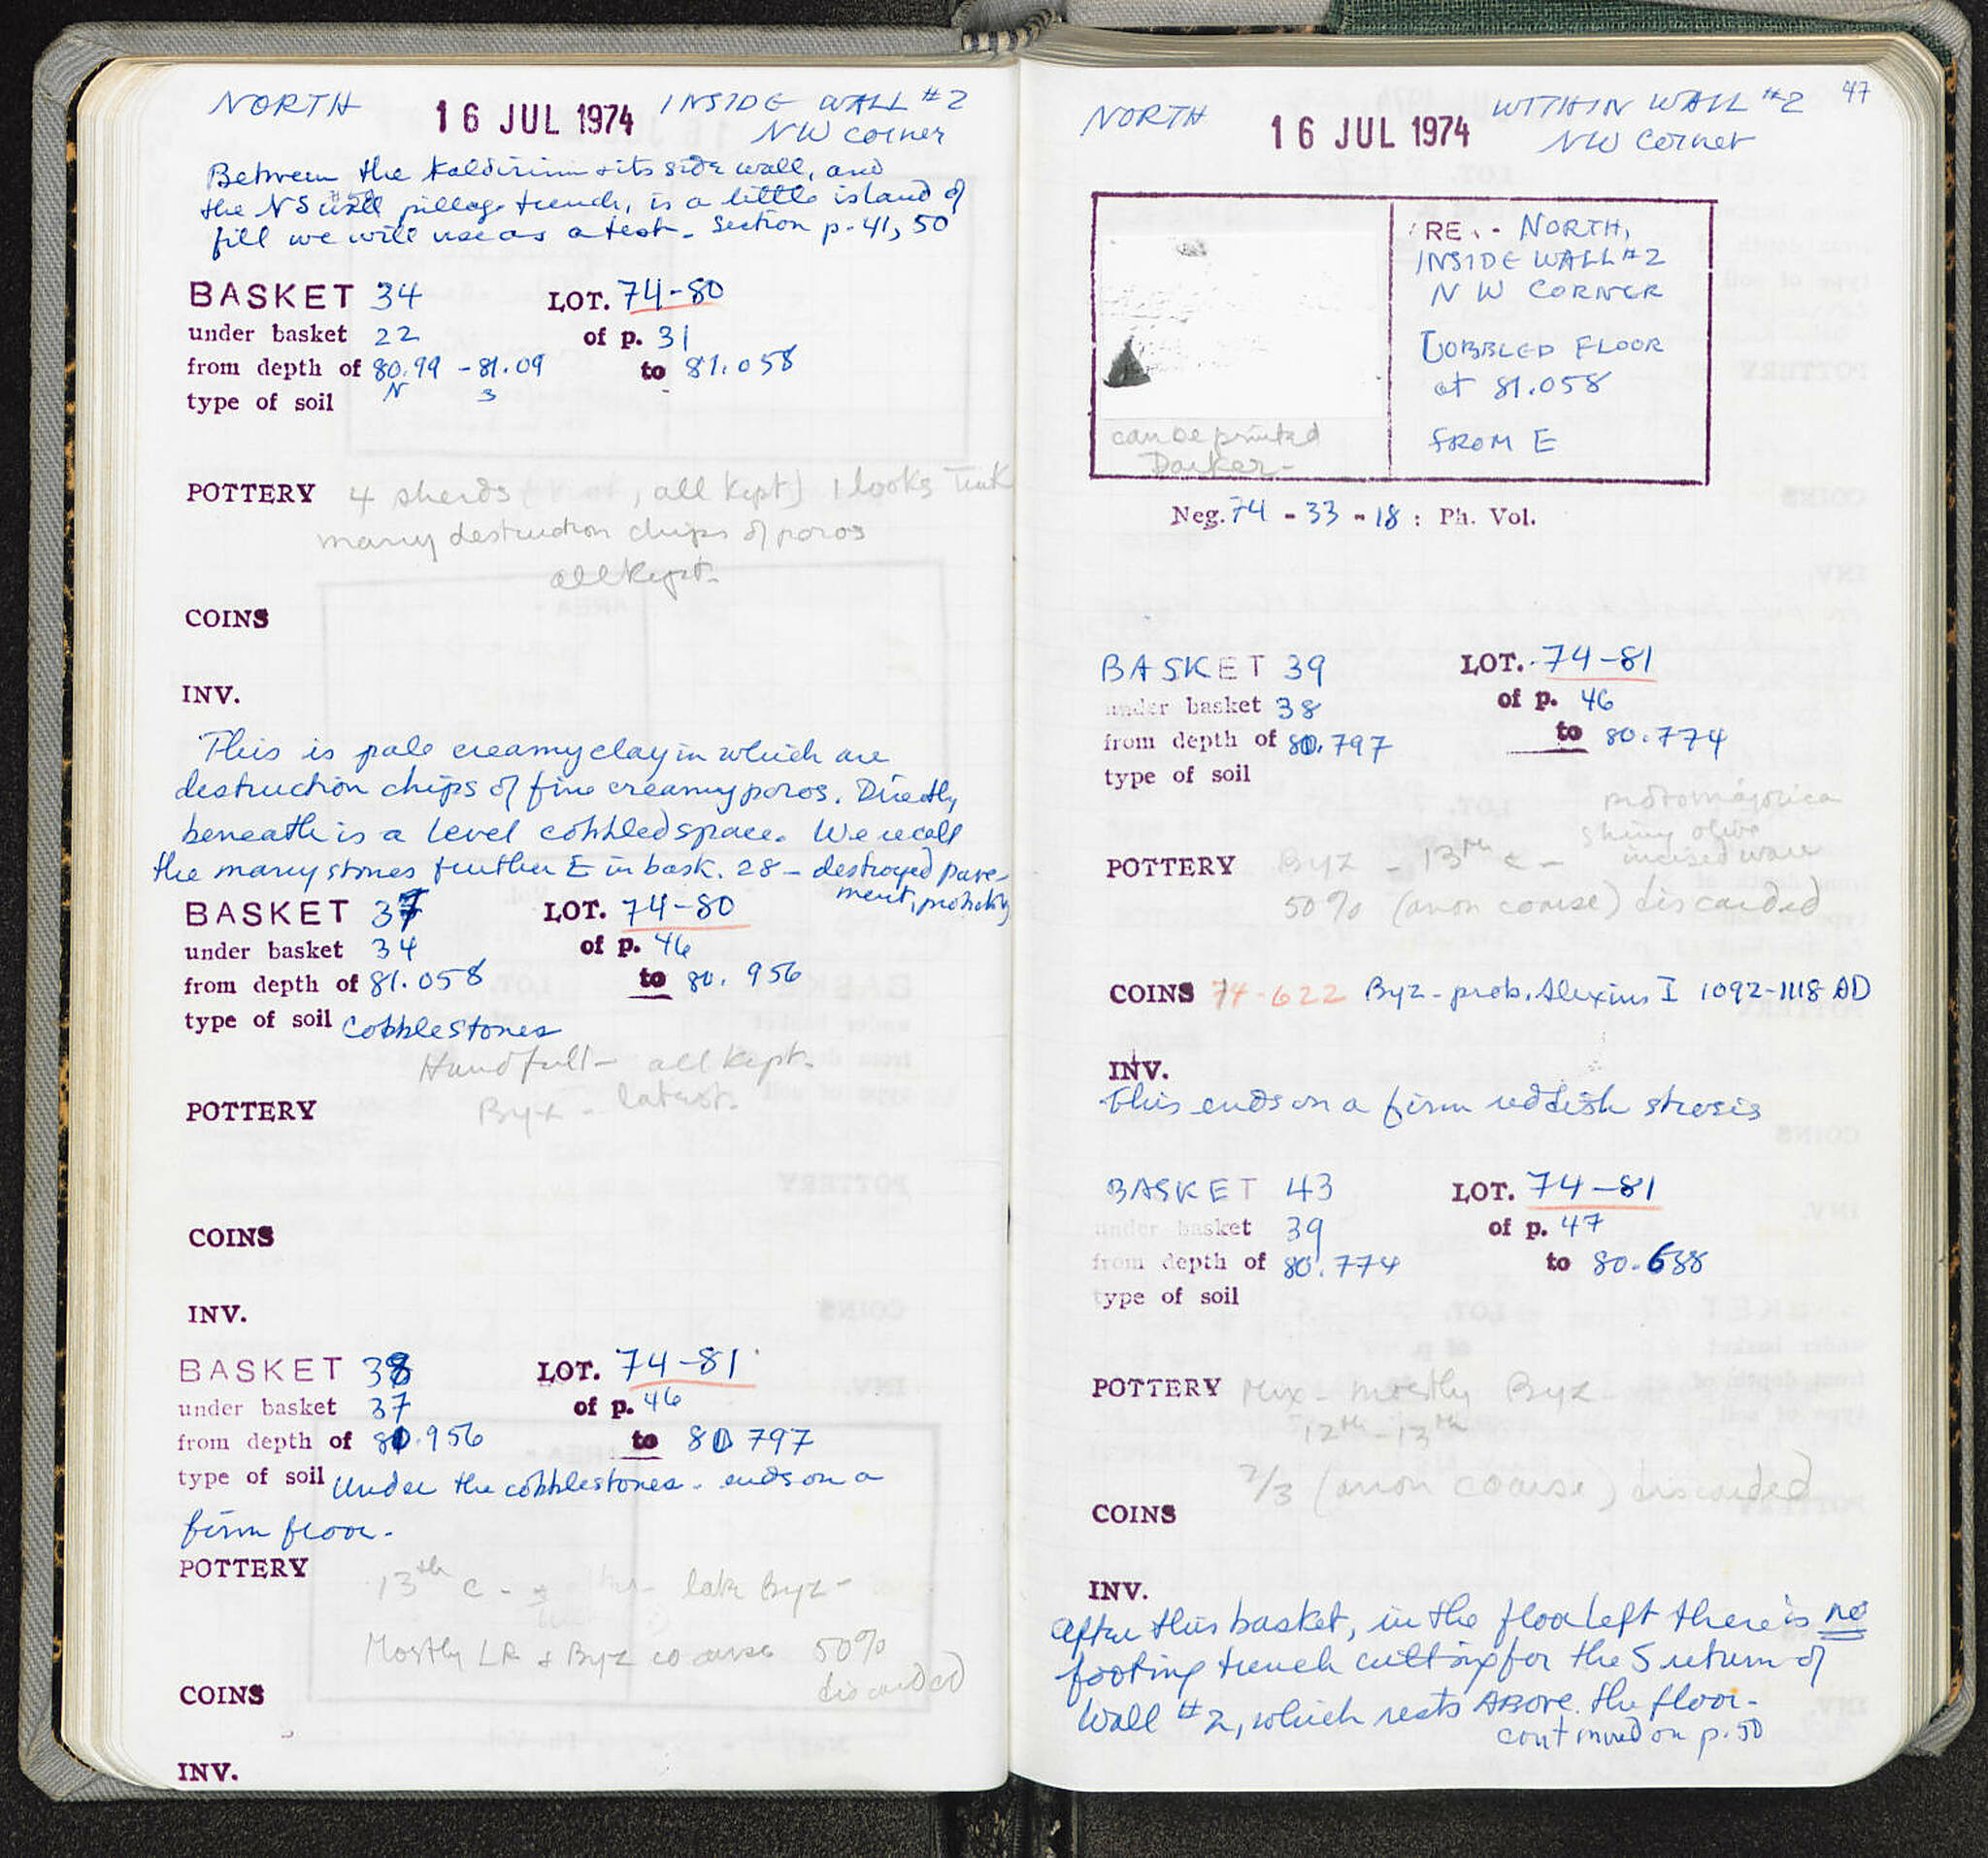 NORTH 16 JUL 1974 INSIDE WALL #2
NW corner
Between the kaldirim + its side wall, and
the NS wall pillage trench, is a little island of
fill we will use as a test. Section p. 41, 50
BASKET 34 LOT. 74-80
under basket 22 of p. 31
from depth of 80.99 - 81.09 to 81.058
N S
type of soil
POTTERY 4 sherds ( , all kept) 1 looks Turk
many destruction chips of poros
all kept.
COINS
INV.
This is pale creamy clay in which are
destruction chips of fine creamy poros. Directly
beneath is a level cobbled space. We recall
the many stones further E in bask. 28 - destroyed pave-
ment, probably
BASKET 37 LOT. 74-80
under basket 34 of p. 46
from depth of 81.058 to 80.956
type of soil Cobblestones
Handfull - all kept.
POTTERY Byz - latest.
COINS
INV.
BASKET 38 LOT. 74-81
under basket 37 of p. 46
from depth of 80.956 to 80 797
type of soil Under the cobblestones - ends on a
firm floor.
POTTERY
13th c - late Byz -
Mostly LR & Byz coarse 50%
discarded
COINS
INV.
47
NORTH 16 JUL 1974 WITHIN WALL #2
NW Corner
RE. - NORTH,
INSIDE WALL #2
NW CORNER
COBBLED FLOOR
at 81.058
FROM E
can be printed
Darker -
Neg. 74 - 33 - 18 : Ph. Vol.
BASKET 39 LOT. 74-81
under basket 38 of p. 46
from depth of 80.797 to 80.774
type of soil
protomajolica
shiny olive
POTTERY Byz - 13th c - incised ware
50% (anon coarse) discarded
COINS 74-622 Byz - prob. Alexius I 1092-1118 AD
INV.
This ends on a firm reddish strosis
BASKET 43 LOT. 74-81
under basket 39 of p. 47
from depth of 80.774 to 80.688
type of soil
POTTERY Mix - mostly Byz
12th - 13th
2/3 (anon coarse) discarded
COINS
INV.
After this basket, in the floor left there is no
footing trench cutting for the S return of
Wall #2, which rests ABOVE the floor.
continued on p. 50